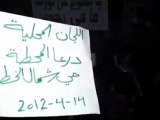 اللجان المحلية
درعا المحطة
حي شمال الخط
2012-4-14